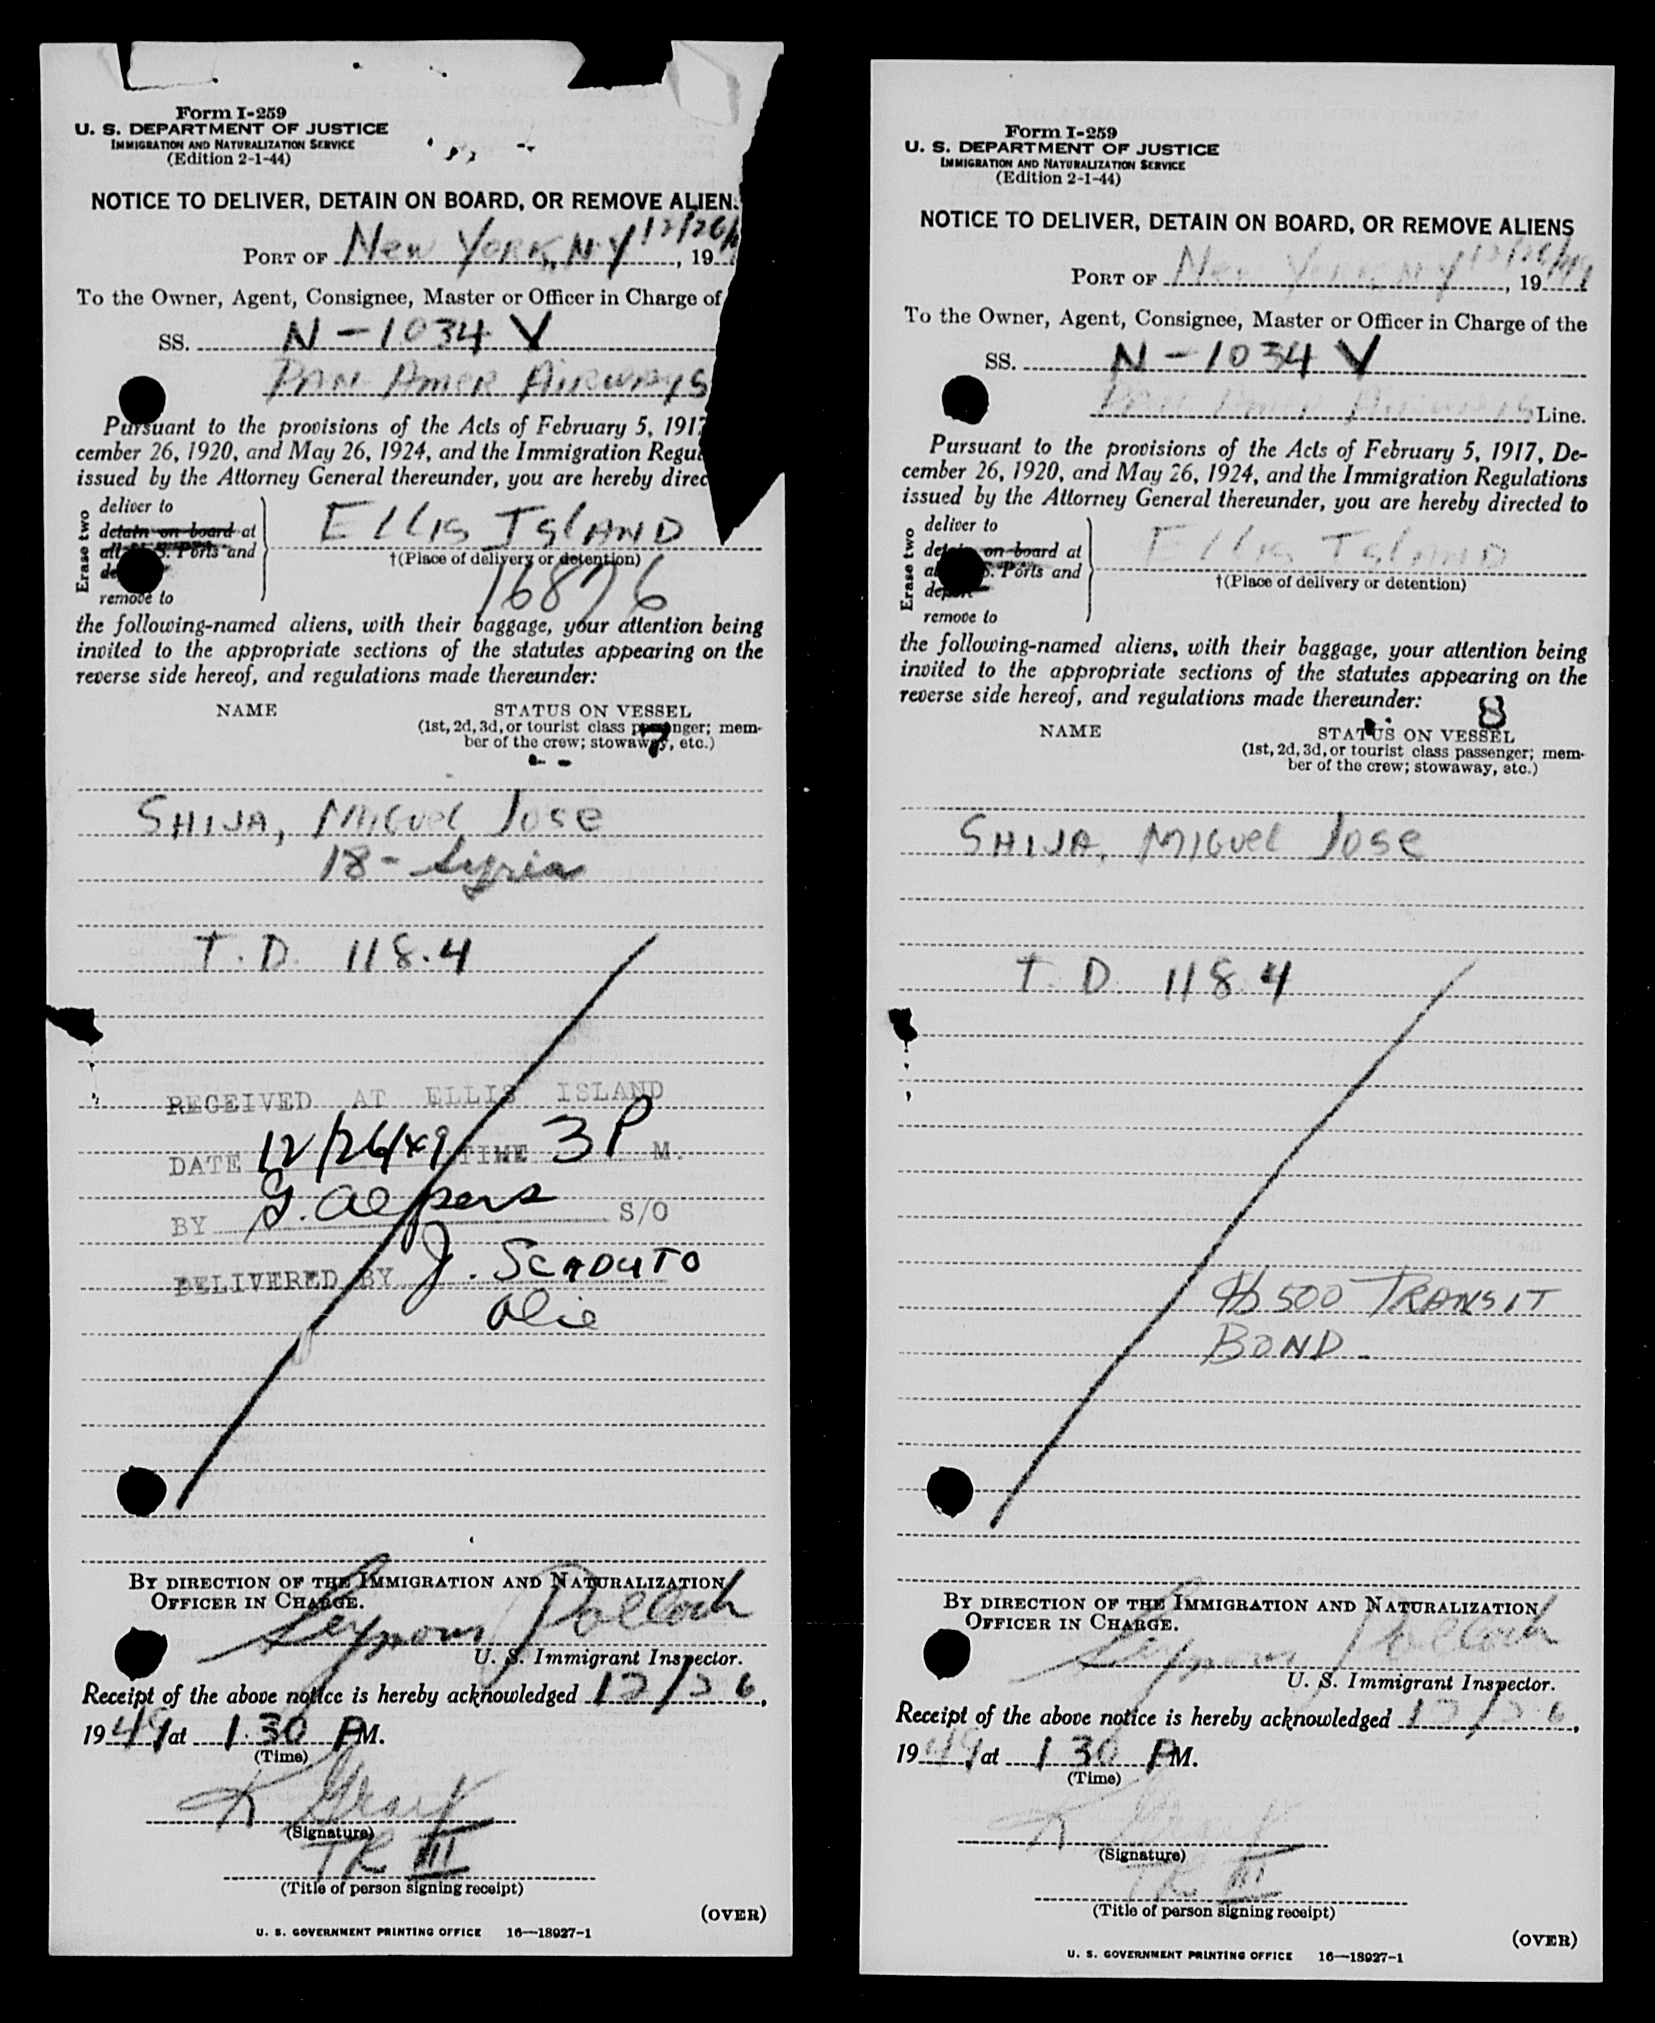 Form I-259
U. S. DEPARTMENT OF JUSTICE
IMMIGRATION AND NATURALIZATION SERVICE
(Edition 2-1-44)
NOTICE TO DELIVER, DETAIN ON BOARD, OR REMOVE ALIEN
PORT OF New York, N.Y 12/26/4, 19
To the Owner, Agent, Consignee, Master or Officer in Charge of
SS. N-1034 V
PAN AMER AIRWAYS
Pursuant to the provisions of the Acts of February 5, 191
cember 26, 1920, and May 26, 1924, and the Immigration Regu
issued by the Attorney General thereunder, you are hereby direc
Erase two
deliver to
detain on board at
all S. Ports and
de
remove to
ELLIS ISLAND
†(Place of delivery or detention)
16876
the following-named aliens, with their baggage, your attention being
invited to the appropriate sections of the statutes appearing on the
reverse side hereof, and regulations made thereunder:
NAME STATUS ON VESSEL
(1st, 2d, 3d, or tourist class passenger; mem-
ber of the crew; stowaway, etc.)
7
SHIJA, MIGUEL JOSE
18 - Syria
T. D. 118.4
RECEIVED AT ELLIS ISLAND
DATE 12/26/49 TIME 3 P M.
BY G. Alpers S/O
DELIVERED BY J. SCADUTO
BY DIRECTION OF THE IMMIGRATION AND NATURALIZATION
OFFICER IN CHARGE.
Seymour Pollock
U. S. Immigrant Inspector.
Receipt of the above notice is hereby acknowledged 12/26,
1949 at 1:30 PM.
(Time)
(Signature)
TR III
(Title of person signing receipt)
(OVER)
U. S. GOVERNMENT PRINTING OFFICE 16—18927-1
Form I-259
U. S. DEPARTMENT OF JUSTICE
IMMIGRATION AND NATURALIZATION SERVICE
(Edition 2-1-44)
NOTICE TO DELIVER, DETAIN ON BOARD, OR REMOVE ALIENS
PORT OF New York, N.Y 12/26/49, 19
To the Owner, Agent, Consignee, Master or Officer in Charge of the
SS. N-1034 V
PAN AMER AIRWAYS Line.
Pursuant to the provisions of the Acts of February 5, 1917, De-
cember 26, 1920, and May 26, 1924, and the Immigration Regulations
issued by the Attorney General thereunder, you are hereby directed to
Erase two
deliver to
detain on board at
a S. Ports and
deport
remove to
ELLIS ISLAND
†(Place of delivery or detention)
the following-named aliens, with their baggage, your attention being
invited to the appropriate sections of the statutes appearing on the
reverse side hereof, and regulations made thereunder:
8
NAME STATUS ON VESSEL
(1st, 2d, 3d, or tourist class passenger; mem-
ber of the crew; stowaway, etc.)
SHIJA, MIGUEL JOSE
T. D. 118.4
$500 TRANSIT
BOND
BY DIRECTION OF THE IMMIGRATION AND NATURALIZATION
OFFICER IN CHARGE.
Seymour Pollock
U. S. Immigrant Inspector.
Receipt of the above notice is hereby acknowledged 12/26,
1949 at 1 30 PM.
(Time)
(Signature)
TR III
(Title of person signing receipt)
(OVER)
U. S. GOVERNMENT PRINTING OFFICE 16—18927-1